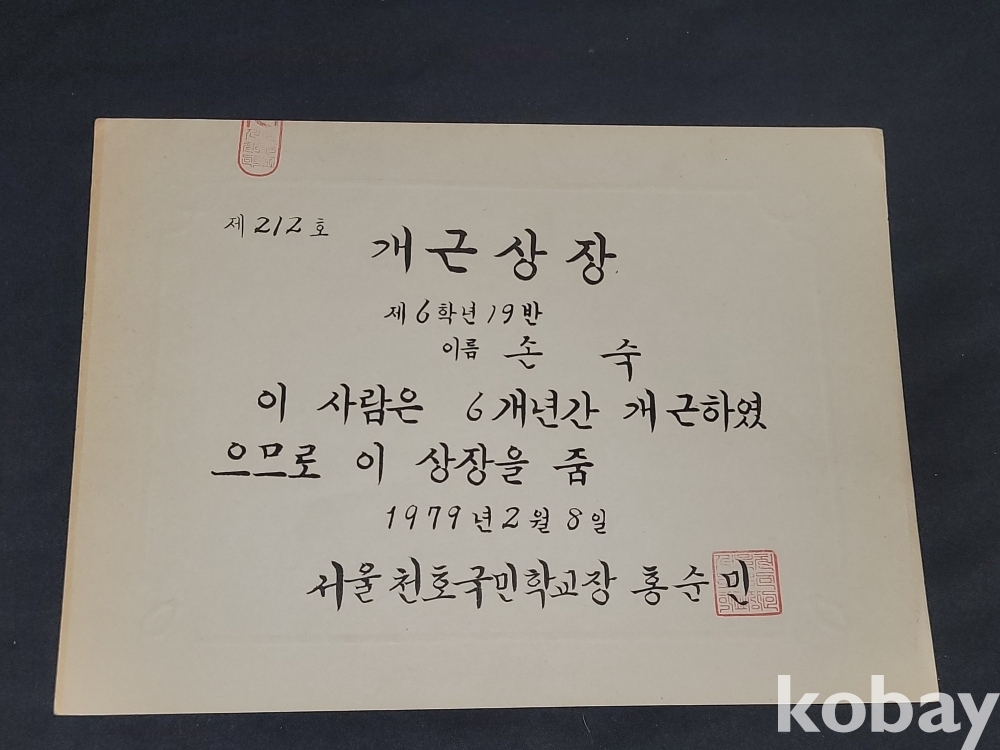 제 212 호
개근상장
제 6 학년 19 반
이름 손 숙
이 사람은 6개년간 개근하였
으므로 이 상장을 줌
1979년 2월 8일
서울천호국민학교장 홍순민
kobay